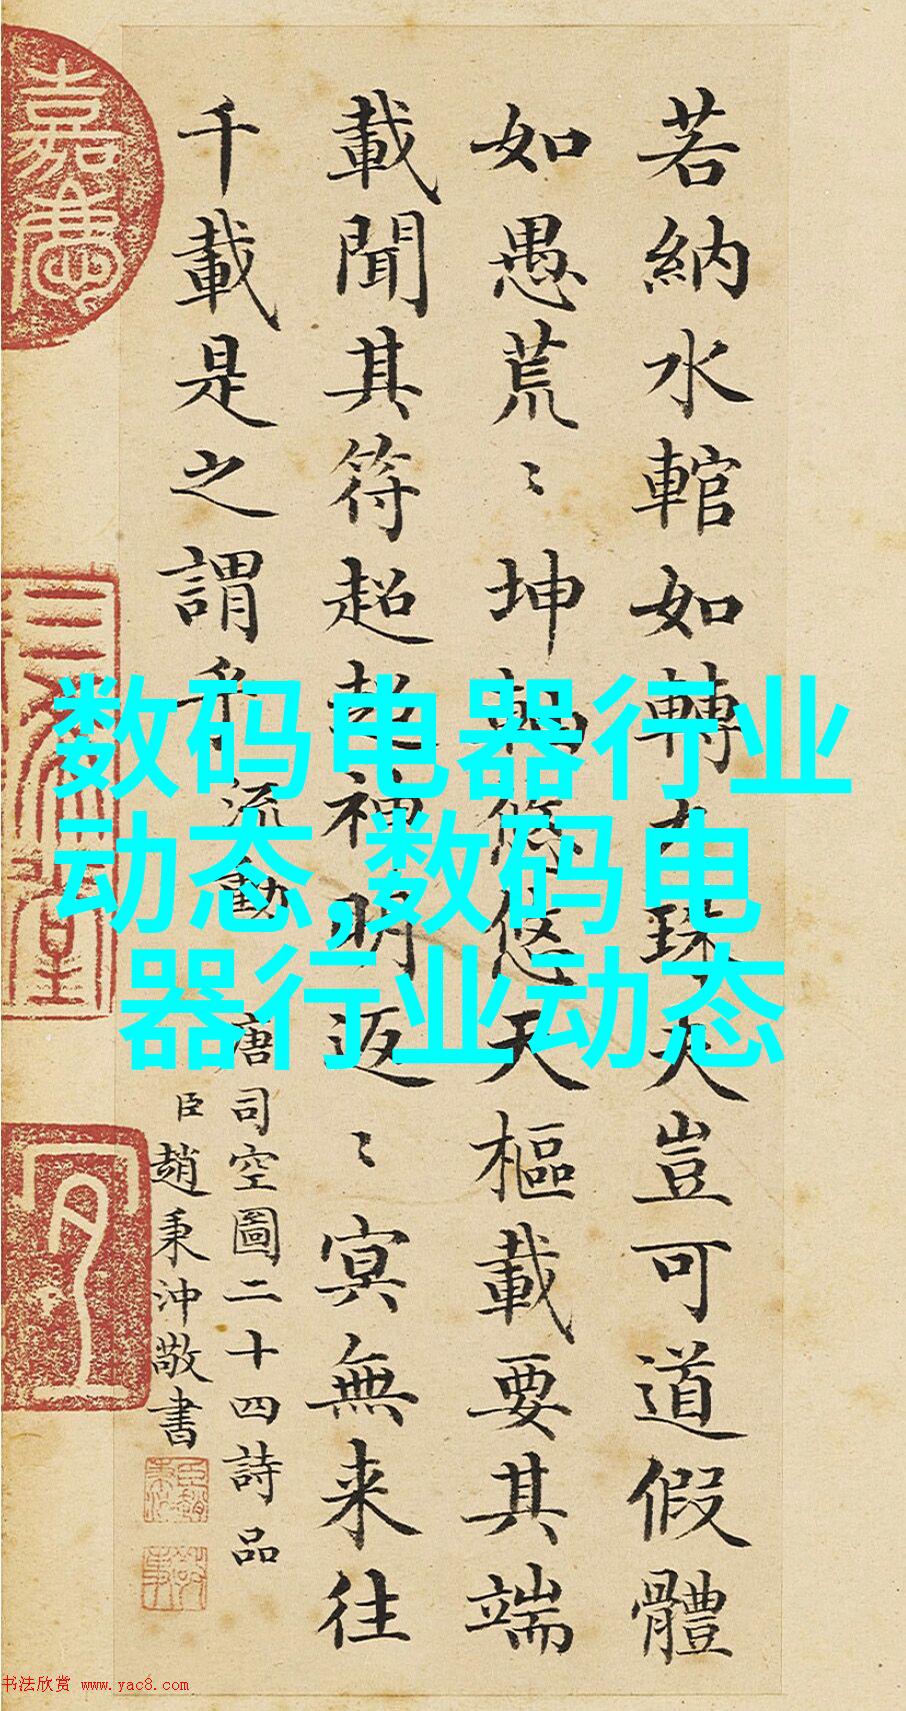 若納水輨如轉丸珠夫豈可道假體
如愚荒〻坤軸悠悠天樞載要其端
載聞其符超超神明返〻冥無来往
千載是之謂乎 流動
唐司空圖二十四詩品
臣趙秉沖敬書
嘉慶
三希堂
数码电器行业
动态,数码电
器行业动态
书法欣赏 www.yac8.com